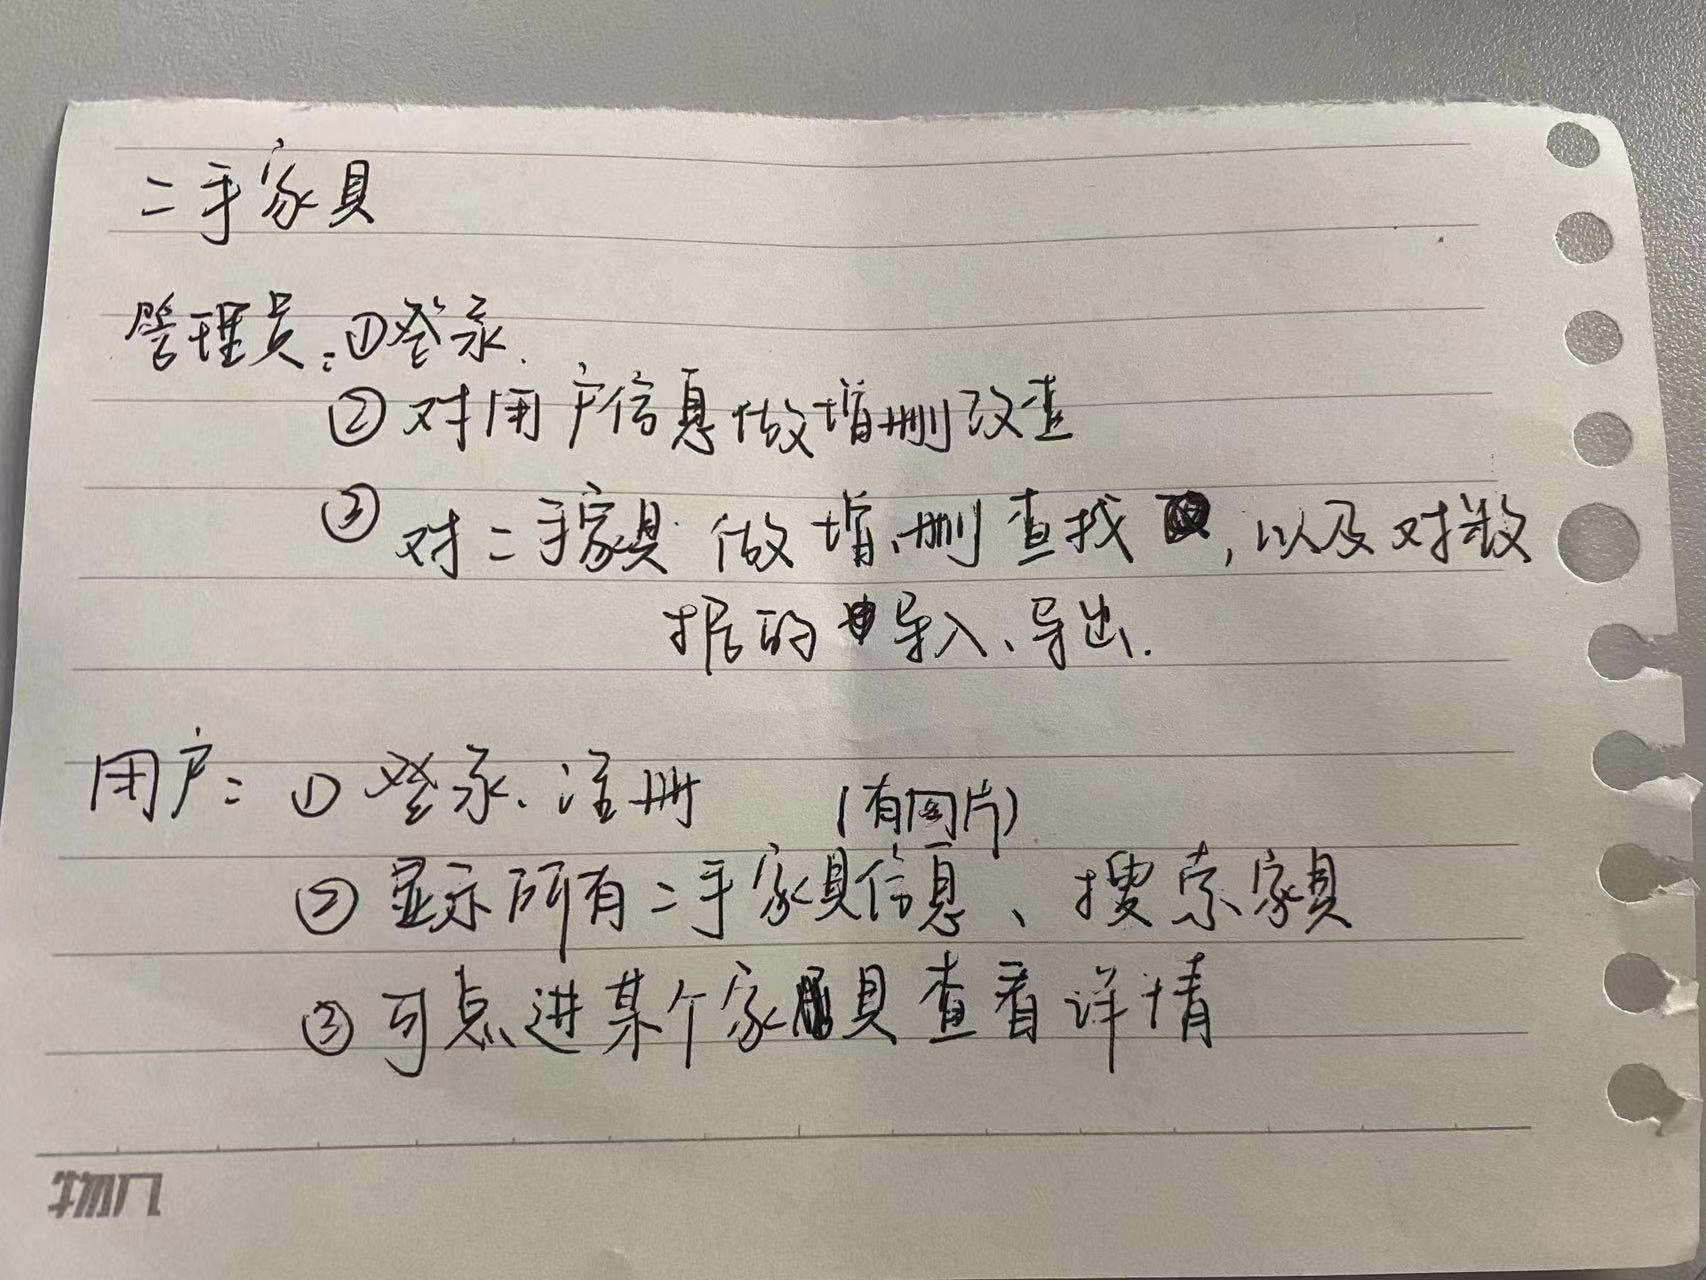 二手家具
管理员:①登录.
②对用户信息做增删改查
③对二手家具做增、删查找,以及对数
据的导入、导出.
用户:①登录、注册
(有图片)
②显示所有二手家具信息、搜索家具
③可点进某个家具查看详情